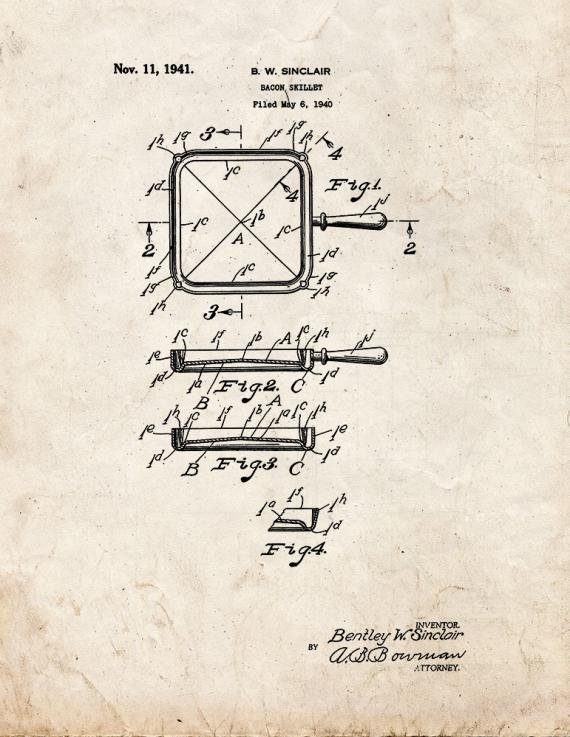 Nov. 11, 1941.
B. W. SINCLAIR
BACON SKILLET
Filed May 6, 1940
3
1g 1f 1g 1h
1h
4
1d 1c
Fig.1.
4
1c 1b 1c 1j
A
2 1d 2
1f 1c 1g
1g
1h 1h
3
1c 1f 1b A 1c 1h 1j
1e
1d 1a Fig.2. C 1d
B
1h 1c 1f 1b A 1a 1c 1h
1e 1e
1d B Fig.3. C 1d
1f
1a 1h
1d
Fig.4.
INVENTOR.
Bentley W. Sinclair
BY A.B.Bowman
ATTORNEY.